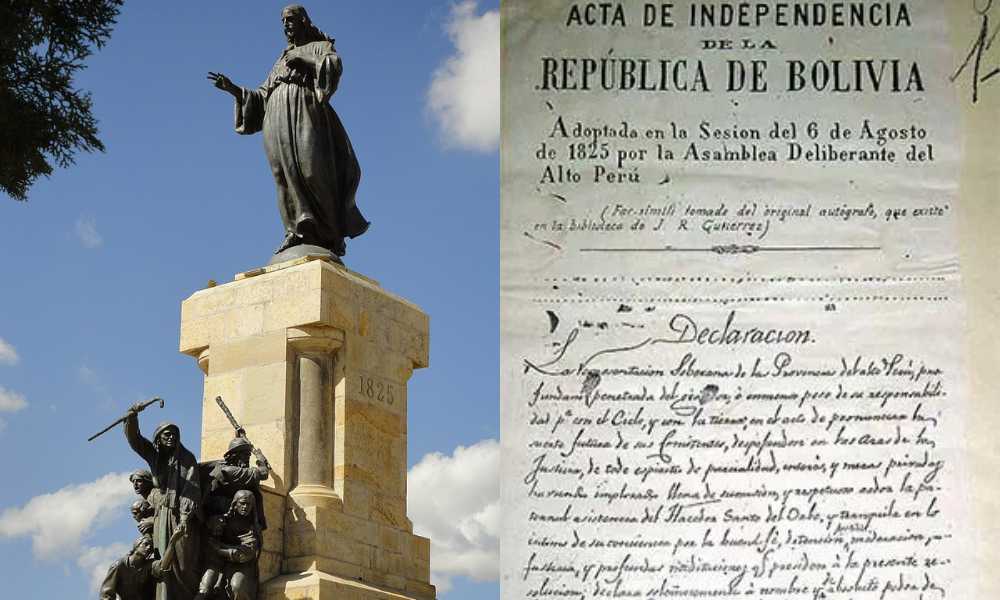 1825
ACTA DE INDEPENDENCIA
DE LA
REPÚBLICA DE BOLIVIA
Adoptada en la Sesion del 6 de Agosto
de 1825 por la Asamblea Deliberante del
Alto Perú
(Fac-simili tomado del original autógrafo, que existe
en la biblioteca de J. R. Gutierrez)
Declaracion.
La representacion Soberana de las Provincias del alto Perú, pro
fundamente penetrada del é inmenso peso de su responsabili
dad p.ª con el Cielo, y con la tierra, en el acto de pronunciar la
suerte futura de sus despojandose en las Aras de la
Justicia, de todo espiritu de parcialidad, interés, y miras privadas
implorado llena de sumision, y respetuoso la pa
ternal asistencia del Hacedor Santo del Orbe, y tranquila en lo
intimo de su conciencia por la buena fé, detencion, moderacion,
justicia, y profundas meditaciones q.e presiden á la presente re
solucion; declara solemnemente á nombre y absoluto poder de